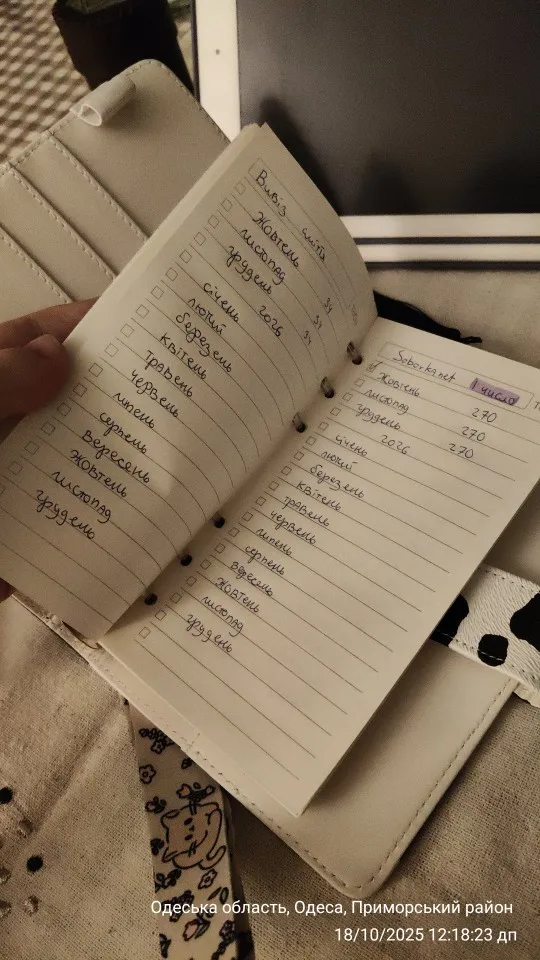 Вивіз сміття
жовтень 34
листопад 34
грудень 34
січень 2026
лютий
березень
квітень
травень
червень
липень
серпень
вересень
жовтень
листопад
грудень
Soborka.net 1 число
жовтень 270
листопад 270
грудень 270
січень 2026
лютий
березень
квітень
травень
червень
липень
серпень
вересень
жовтень
листопад
грудень
Одеська область, Одеса, Приморський район
18/10/2025 12:18:23 дп